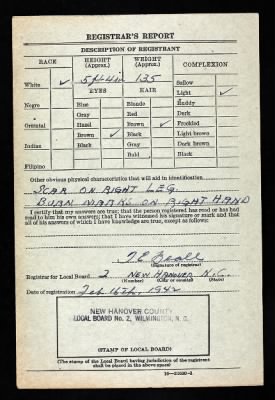 REGISTRAR'S REPORT
DESCRIPTION OF REGISTRANT
RACE HEIGHT (Approx.) WEIGHT (Approx.) COMPLEXION
5ft 4in 135 Sallow
White ✓ EYES HAIR Light ✓
Negro Blue Blonde Ruddy
Gray Red Dark
Oriental Hazel Brown ✓ Freckled
Brown ✓ Black Light brown
Indian Black Gray Dark brown
Bald Black
Filipino
Other obvious physical characteristics that will aid in identification
SCAR ON RIGHT LEG
BURN MARKS ON RIGHT HAND
I certify that my answers are true; that the person registered has read or has had
read to him his own answers; that I have witnessed his signature or mark and that
all of his answers of which I have knowledge are true, except as follows:
(Signature of registrar)
Registrar for Local Board 2 NEW HANOVER N.C.
(Number) (City or county) (State)
Date of registration Feb 16th, 1942
NEW HANOVER COUNTY
LOCAL BOARD No. 2, WILMINGTON, N. C.
(STAMP OF LOCAL BOARD)
(The stamp of the Local Board having jurisdiction of the registrant
shall be placed in the above space)